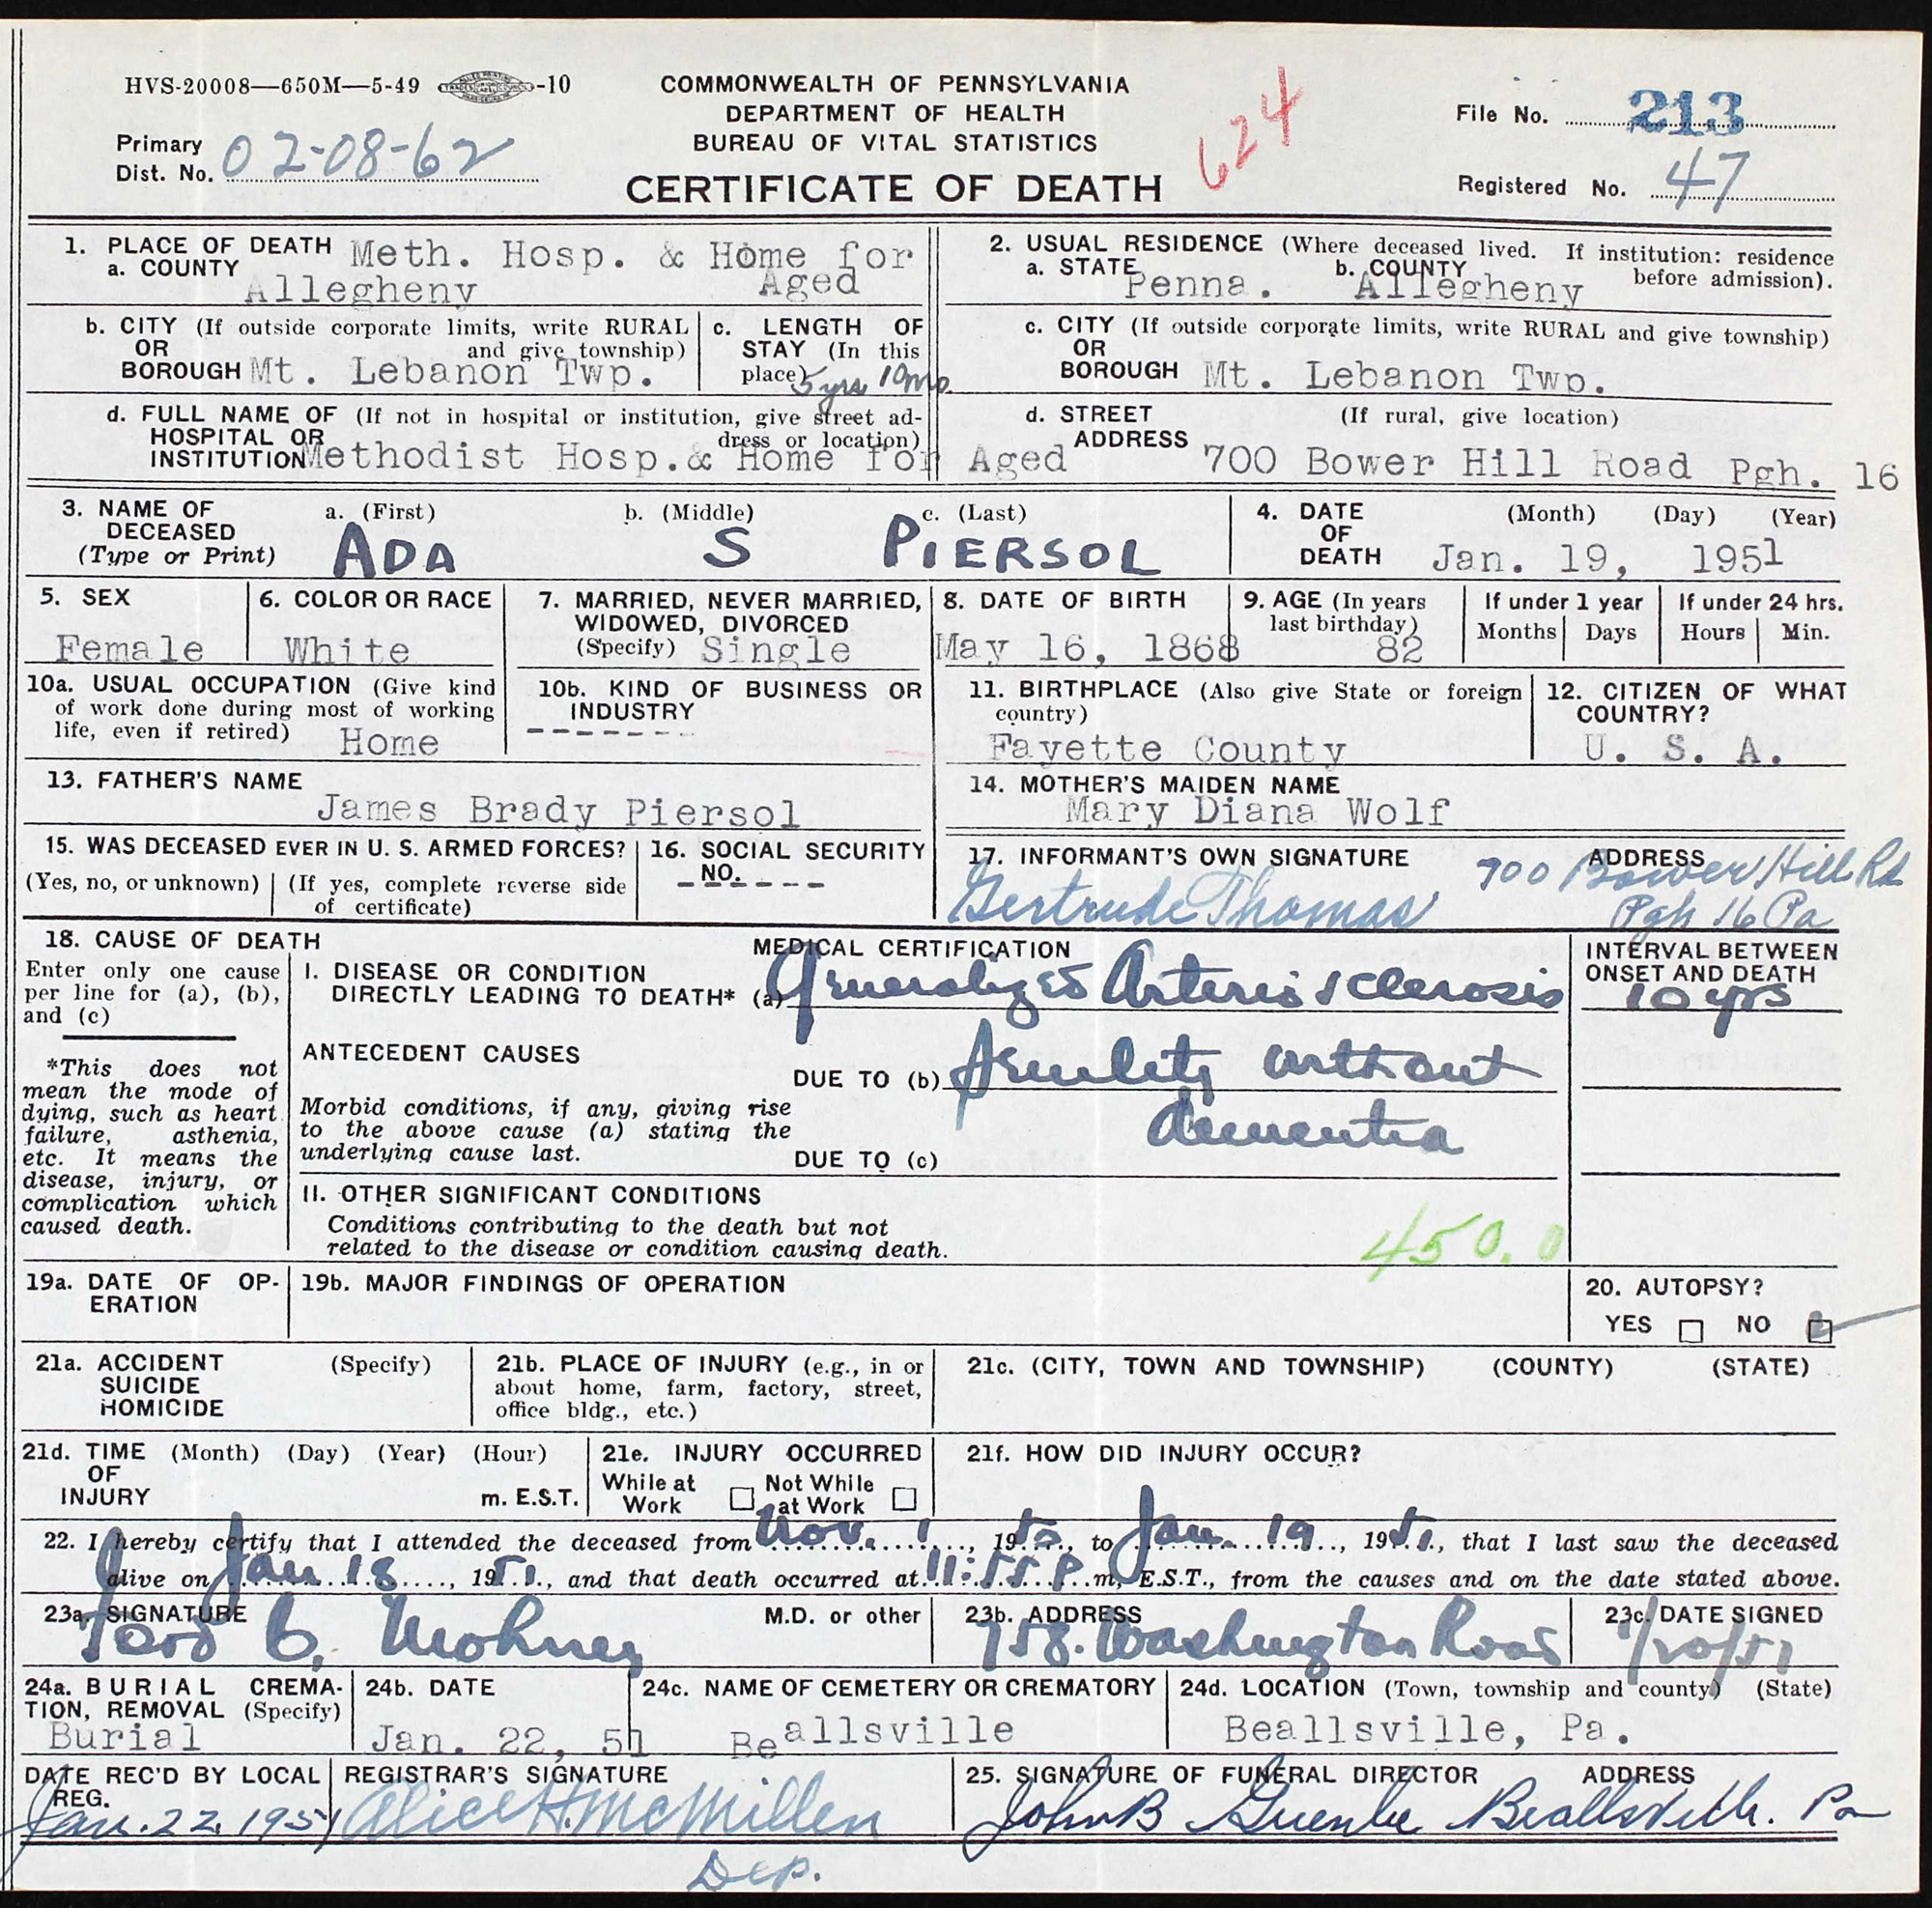 HVS-20008—650M—5-49 -10
COMMONWEALTH OF PENNSYLVANIA
DEPARTMENT OF HEALTH
BUREAU OF VITAL STATISTICS
CERTIFICATE OF DEATH
624
Primary
Dist. No. 02-08-62
File No. 213
Registered No. 47
1. PLACE OF DEATH Meth. Hosp. & Home for
a. COUNTY Allegheny Aged
2. USUAL RESIDENCE (Where deceased lived. If institution: residence
before admission).
a. STATE Penna. b. COUNTY Allegheny
b. CITY (If outside corporate limits, write RURAL
OR and give township)
BOROUGH Mt. Lebanon Twp.
c. LENGTH OF
STAY (In this
place) 5 yrs 10 mo.
c. CITY (If outside corporate limits, write RURAL and give township)
OR
BOROUGH Mt. Lebanon Twp.
d. FULL NAME OF (If not in hospital or institution, give street ad-
HOSPITAL OR dress or location)
INSTITUTION Methodist Hosp.& Home for Aged
d. STREET (If rural, give location)
ADDRESS 700 Bower Hill Road Pgh. 16
3. NAME OF
DECEASED
(Type or Print)
a. (First) b. (Middle) c. (Last)
ADA S PIERSOL
4. DATE (Month) (Day) (Year)
OF
DEATH Jan. 19, 1951
5. SEX
Female
6. COLOR OR RACE
White
7. MARRIED, NEVER MARRIED,
WIDOWED, DIVORCED
(Specify) Single
8. DATE OF BIRTH
May 16, 1868
9. AGE (In years
last birthday)
82
If under 1 year
Months Days
If under 24 hrs.
Hours Min.
10a. USUAL OCCUPATION (Give kind
of work done during most of working
life, even if retired) Home
10b. KIND OF BUSINESS OR
INDUSTRY
-------
11. BIRTHPLACE (Also give State or foreign
country)
Fayette County
12. CITIZEN OF WHAT
COUNTRY?
U. S. A.
13. FATHER'S NAME
James Brady Piersol
14. MOTHER'S MAIDEN NAME
Mary Diana Wolf
15. WAS DECEASED EVER IN U. S. ARMED FORCES?
(Yes, no, or unknown) (If yes, complete reverse side
of certificate)
16. SOCIAL SECURITY
NO.
------
17. INFORMANT'S OWN SIGNATURE ADDRESS
Gertrude Thomas 700 Bower Hill Rd
Pgh 16 Pa
18. CAUSE OF DEATH
Enter only one cause
per line for (a), (b),
and (c)
*This does not
mean the mode of
dying, such as heart
failure, asthenia,
etc. It means the
disease, injury, or
complication which
caused death.
MEDICAL CERTIFICATION
I. DISEASE OR CONDITION
DIRECTLY LEADING TO DEATH* (a) Generalized Arteriosclerosis
ANTECEDENT CAUSES
DUE TO (b) Senility without
dementia
Morbid conditions, if any, giving rise
to the above cause (a) stating the
underlying cause last.
DUE TO (c)
II. OTHER SIGNIFICANT CONDITIONS
Conditions contributing to the death but not
related to the disease or condition causing death.
450.0
INTERVAL BETWEEN
ONSET AND DEATH
10 yrs
19a. DATE OF OP-
ERATION
19b. MAJOR FINDINGS OF OPERATION
20. AUTOPSY?
YES NO
21a. ACCIDENT (Specify)
SUICIDE
HOMICIDE
21b. PLACE OF INJURY (e.g., in or
about home, farm, factory, street,
office bldg., etc.)
21c. (CITY, TOWN AND TOWNSHIP) (COUNTY) (STATE)
21d. TIME (Month) (Day) (Year) (Hour)
OF
INJURY m. E.S.T.
21e. INJURY OCCURRED
While at Work Not While at Work
21f. HOW DID INJURY OCCUR?
22. I hereby certify that I attended the deceased from Nov. 1, 1950, to Jan. 19, 1951, that I last saw the deceased
alive on Jan 18, 1951, and that death occurred at 11:55 P. m, E.S.T., from the causes and on the date stated above.
23a. SIGNATURE M.D. or other
23b. ADDRESS
758 Washington Road
23c. DATE SIGNED
1/20/51
24a. BURIAL CREMA-
TION, REMOVAL (Specify)
Burial
24b. DATE
Jan. 22, 51
24c. NAME OF CEMETERY OR CREMATORY
Beallsville
24d. LOCATION (Town, township and county) (State)
Beallsville, Pa.
DATE REC'D BY LOCAL
REG.
Jan. 22 1951
REGISTRAR'S SIGNATURE
Alice H. McMillen
Dep.
25. SIGNATURE OF FUNERAL DIRECTOR ADDRESS
John B Beallsville. Pa